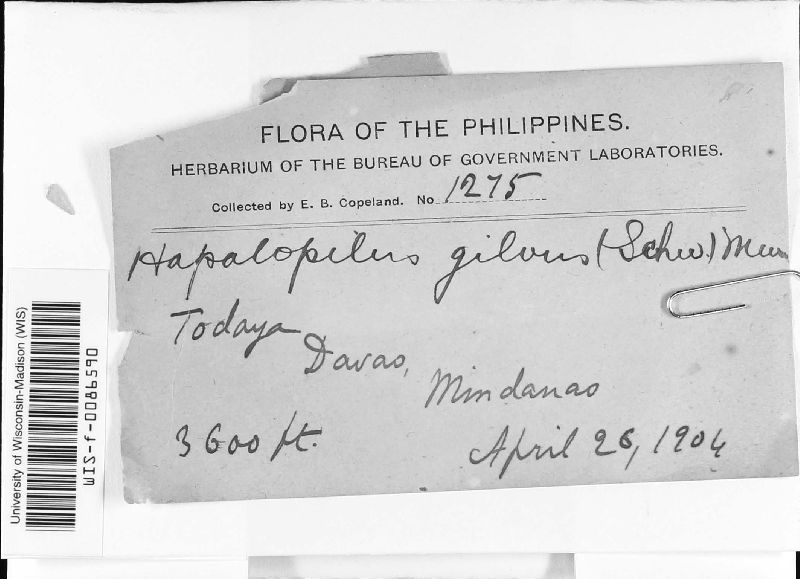 FLORA OF THE PHILIPPINES.
HERBARIUM OF THE BUREAU OF GOVERNMENT LABORATORIES.
Collected by E. B. Copeland. No. 1275
Hapalopilus gilvus (Schw)
Todaya
Davao,
Mindanao
3600 ft.
April 26, 1904
University of Wisconsin-Madison (WIS)
WIS-f-0086590